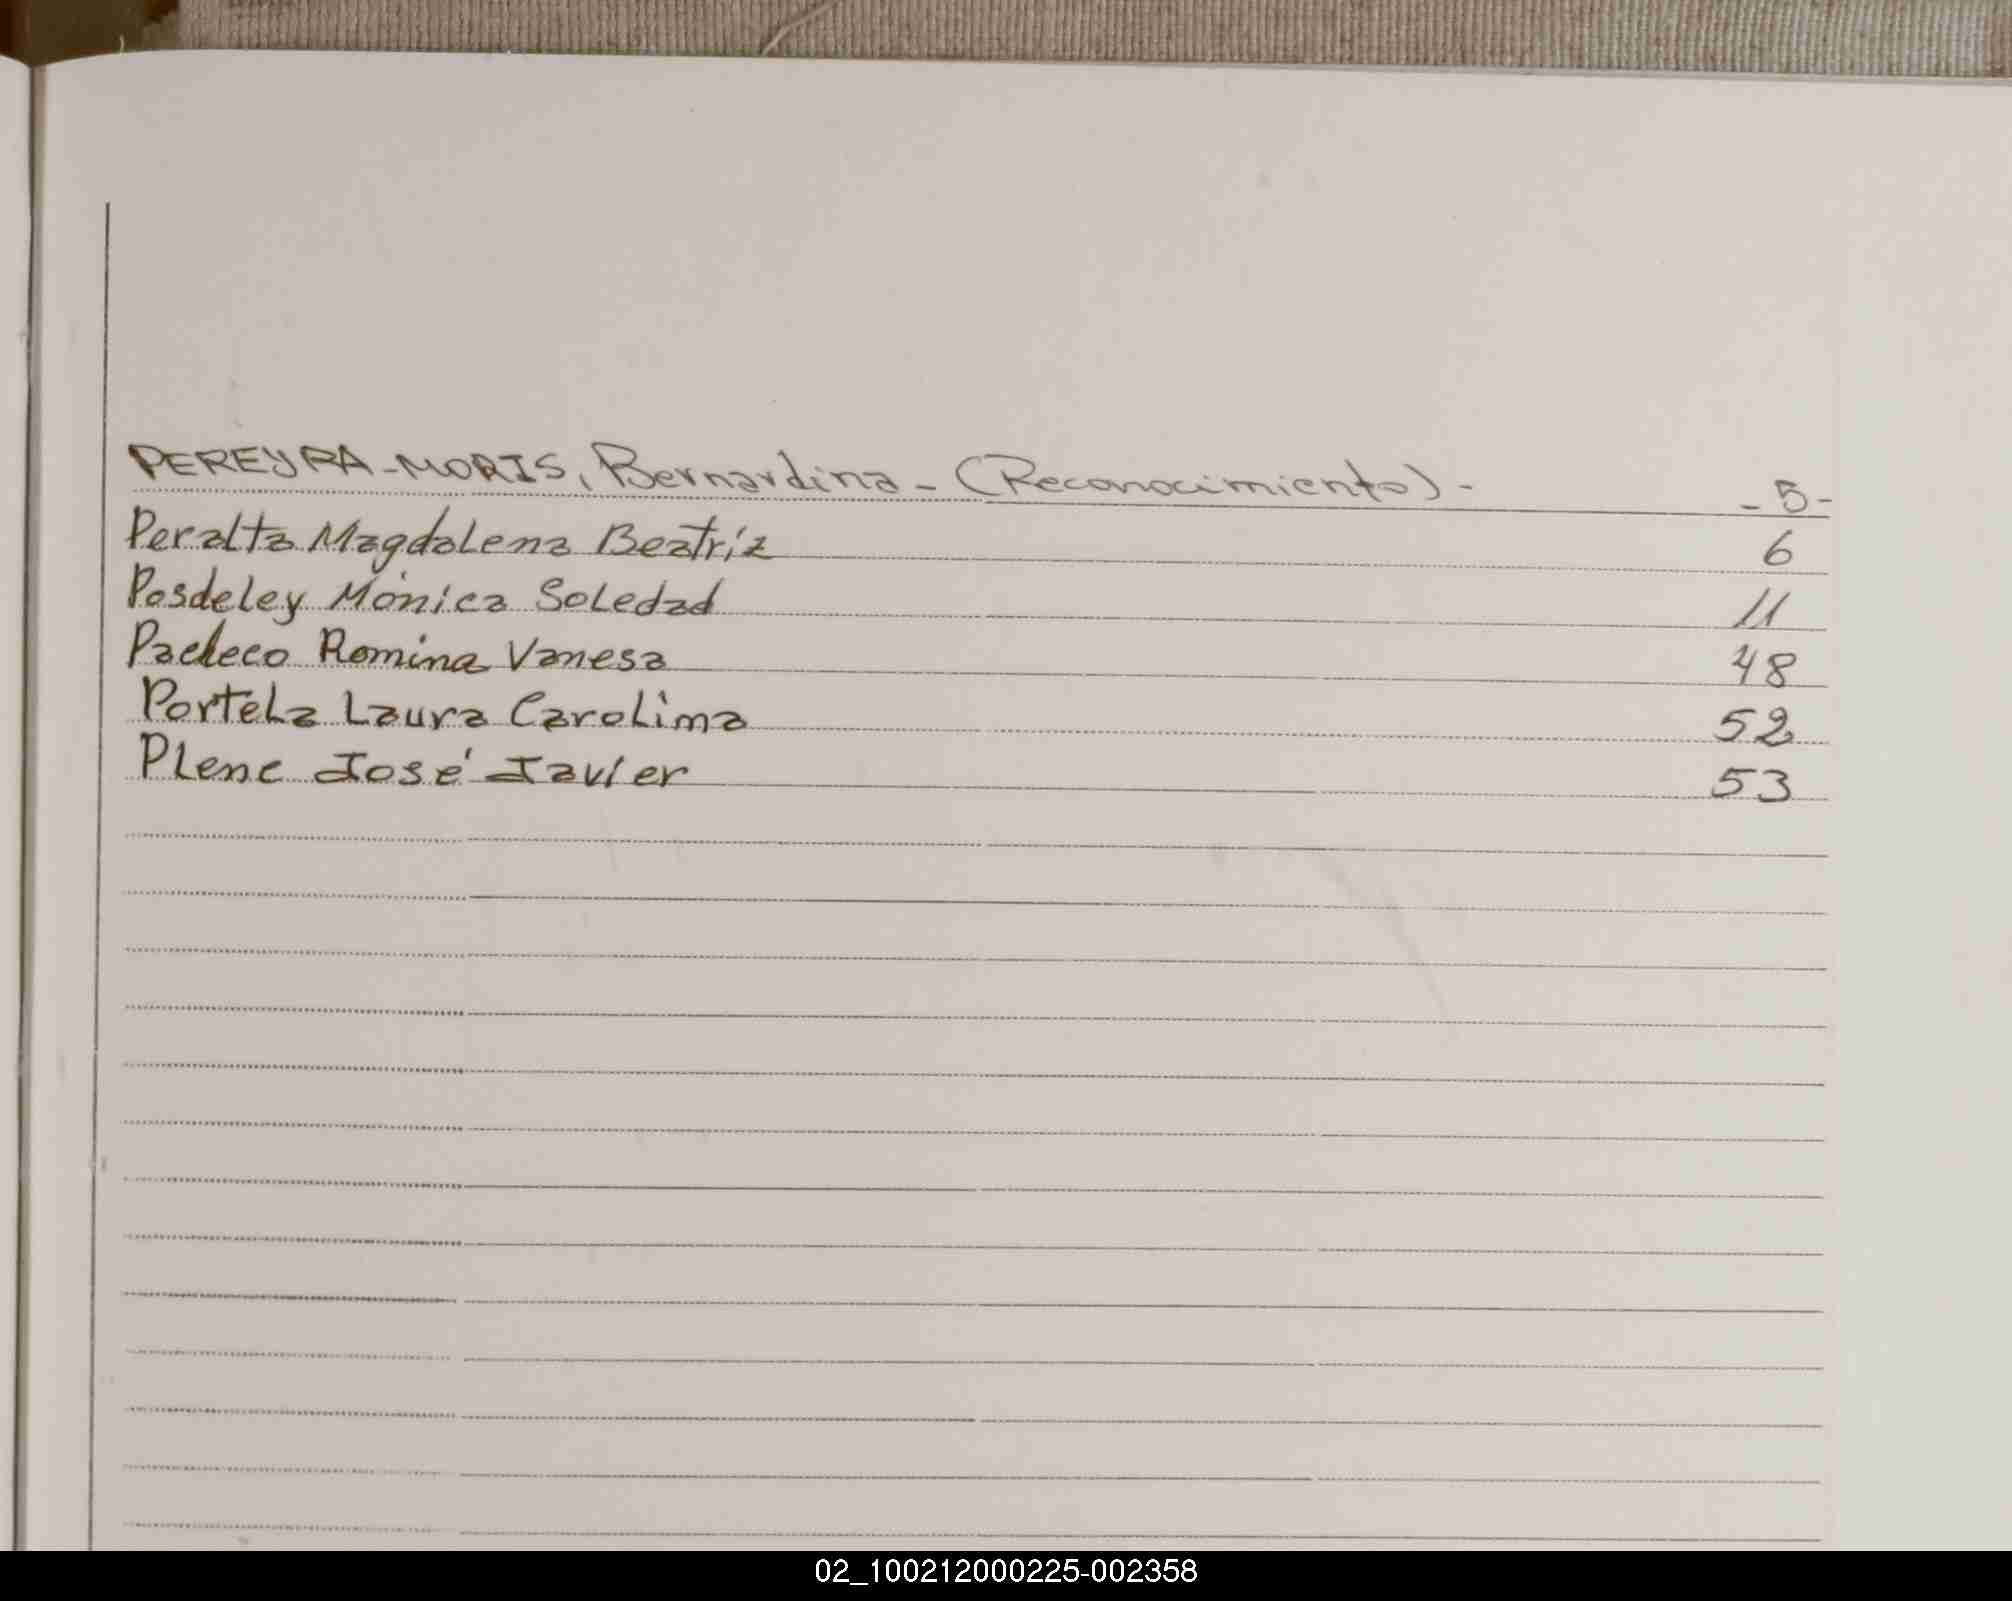 PEREYRA-MORIS, Bernardina - (Reconocimiento) - - 5 -
Peralta Magdalena Beatriz 6
Posdeley Mónica Soledad 11
Pacheco Romina Vanesa 48
Portela Laura Carolina 52
Plenc José Javier 53
02_100212000225-002358